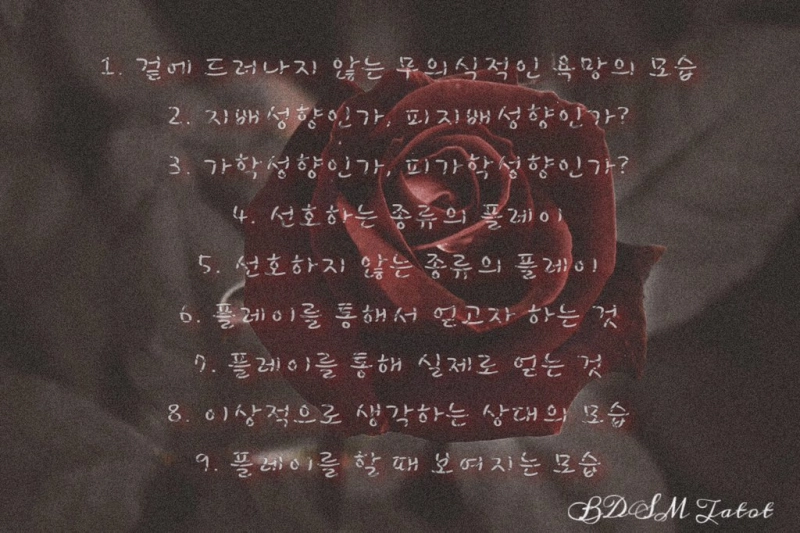 1. 겉에 드러나지 않는 무의식적인 욕망의 모습
2. 지배성향인가, 피지배성향인가?
3. 가학성향인가, 피가학성향인가?
4. 선호하는 종류의 플레이
5. 선호하지 않는 종류의 플레이
6. 플레이를 통해서 얻고자 하는 것
7. 플레이를 통해 실제로 얻는 것
8. 이상적으로 생각하는 상대의 모습
9. 플레이를 할 때 보여지는 모습
BDSM Tatot